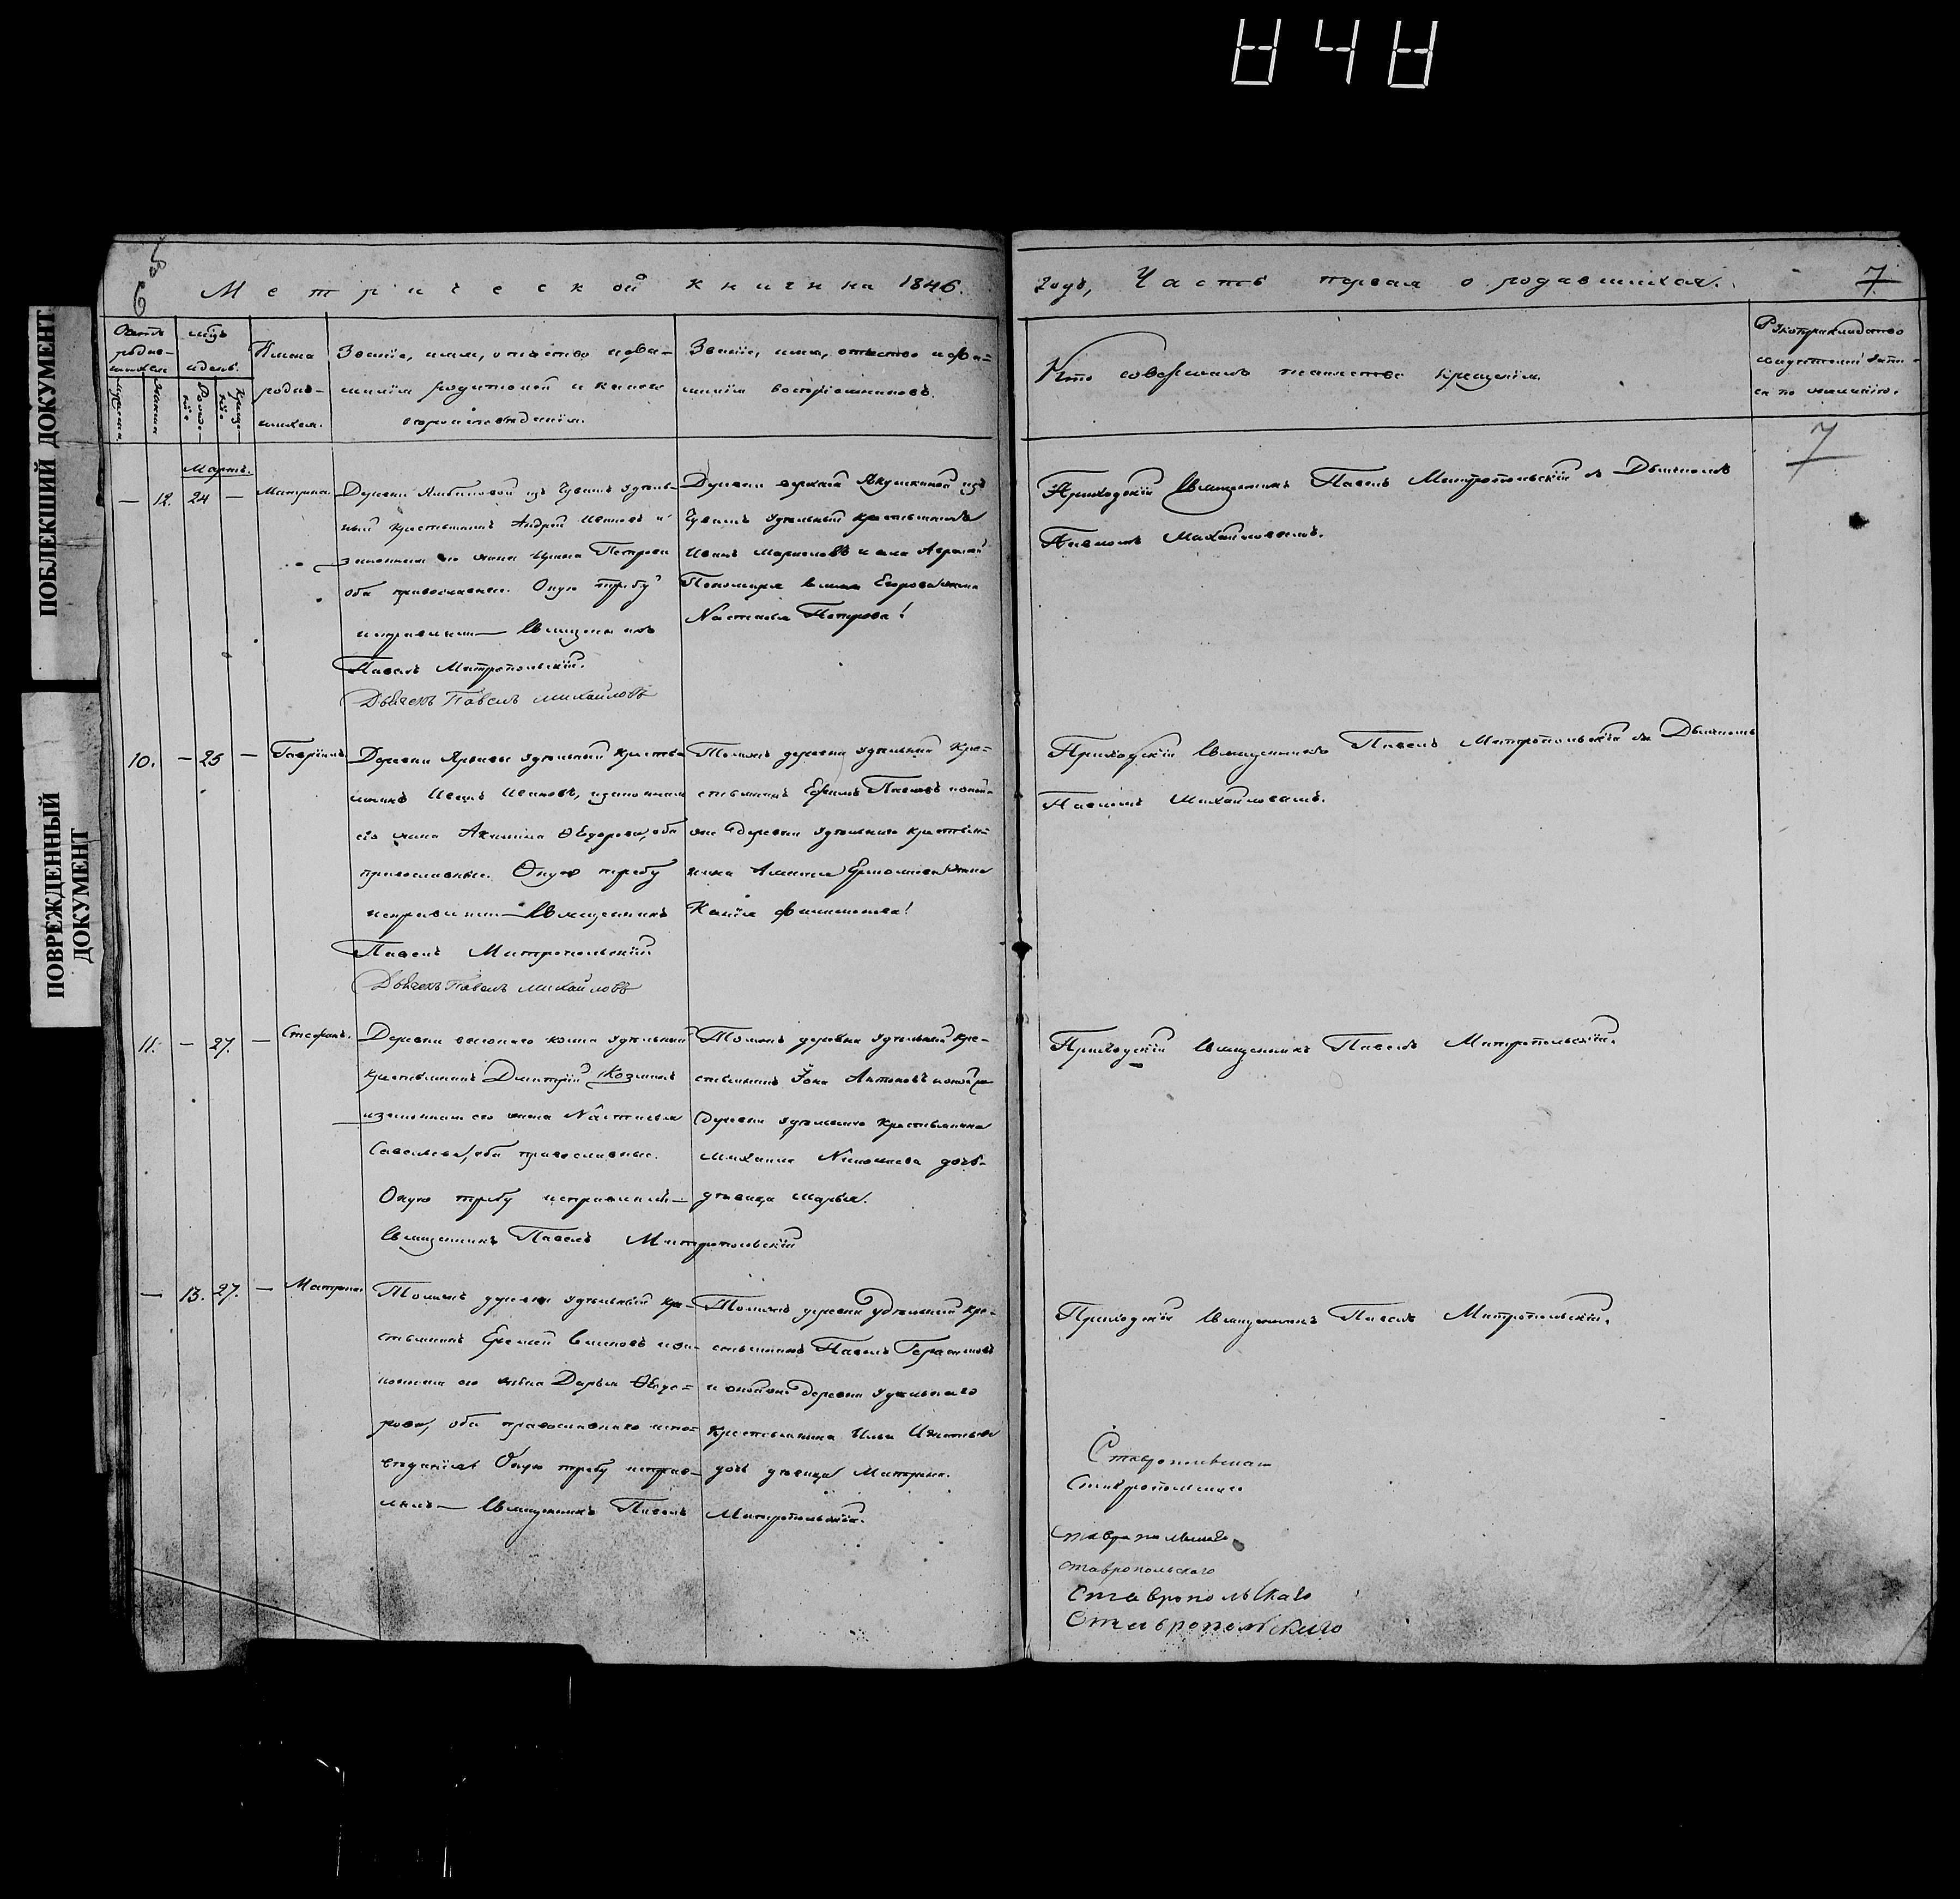 848
ПОБЛЕКШИЙ ДОКУМЕНТ
ПОВРЕЖДЕННЫЙ
ДОКУМЕНТ
6
Метрической книги на 1846.
годъ, Часть первая о родившихся.
7.
Счетъ
родив-
шихся
мужеска
женска
мѣсяцъ
и день.
Рожде-
нiя
Креще-
нiя
Имена
родив-
шихся.
Званiе, имя, отчество и фа-
милiя родителей и какого
вѣроисповѣданiя.
Званiе, имя, отчество и фа-
милiя восприемниковъ.
Кто совершалъ таинство крещенiя.
Рукоприкладство
свидѣтелей запи-
си по желанiю.
7
Мартъ.
— 12. 24 —
Матрона.
Деревни изъ Чувашъ удѣль-
ный крестьянинъ Андрей Ивановъ и
законная его жена Петрова
оба православные. Оную требу
исправляли — Священникъ
Павелъ Митропольскiй.
Дьячекъ Павелъ Михайловъ
Деревни верхней Якушкиной изъ
Чувашъ удѣльный крестьянинъ
Иванъ
Егорова жена
Настасья Петрова!
Приходскiй Священникъ Павелъ Митропольскiй съ Дьячкомъ
Павломъ Михайловымъ.
10. — 25 —
Гаврiилъ
Деревни удѣльный кресть-
янинъ Иванъ Ивановъ, и законная
его жена Акулина Ѳедорова, оба
православные. Оную требу
исправляли — Священникъ
Павелъ Митропольскiй
Дьячекъ Павелъ Михайловъ
Тойжъ деревни удѣльный кре-
стьянинъ Ефимъ Павловъ и оной-
же деревни удѣльнаго крестьян-
ина Алексея Ермолаева жена
Приходскiй Священникъ Павелъ Митропольскiй съ Дьячкомъ
Павломъ Михайловымъ.
11. — 27. —
Стефанъ.
Деревни удѣльный
крестьянинъ Дмитрiй Козминъ
и законная его жена Настасья
Савельева, оба православные.
Оную требу исправлялъ —
Священникъ Павелъ Митропольскiй
Тойжъ деревни удѣльный кре-
стьянинъ Iона Антоновъ и онойже
деревни удѣльнаго крестьянина
Михаила Николаева дочь
дѣвица Марья.
Приходскiй Священникъ Павелъ Митропольскiй.
— 13. 27. —
Матрона
Тойжъ деревни удѣльный кре-
стьянинъ Еремей и за-
конная его жена Дарья Ѳедо-
рова, оба православнаго испо-
вѣданiя Оную требу исправ-
лялъ — Священникъ Павелъ Митропольскiй.
Тойжъ деревни удѣльный кре-
стьянинъ Павелъ Герасимовъ
и онойже деревни удѣльнаго
крестьянина Ильи Игнатьева
дочь дѣвица Матрона.
Приходскiй Священникъ Павелъ Митропольскiй.
Ставропольскаго
Ставропольскаго
ставропольскаго
Ставропольскаго
Ставропольскаго